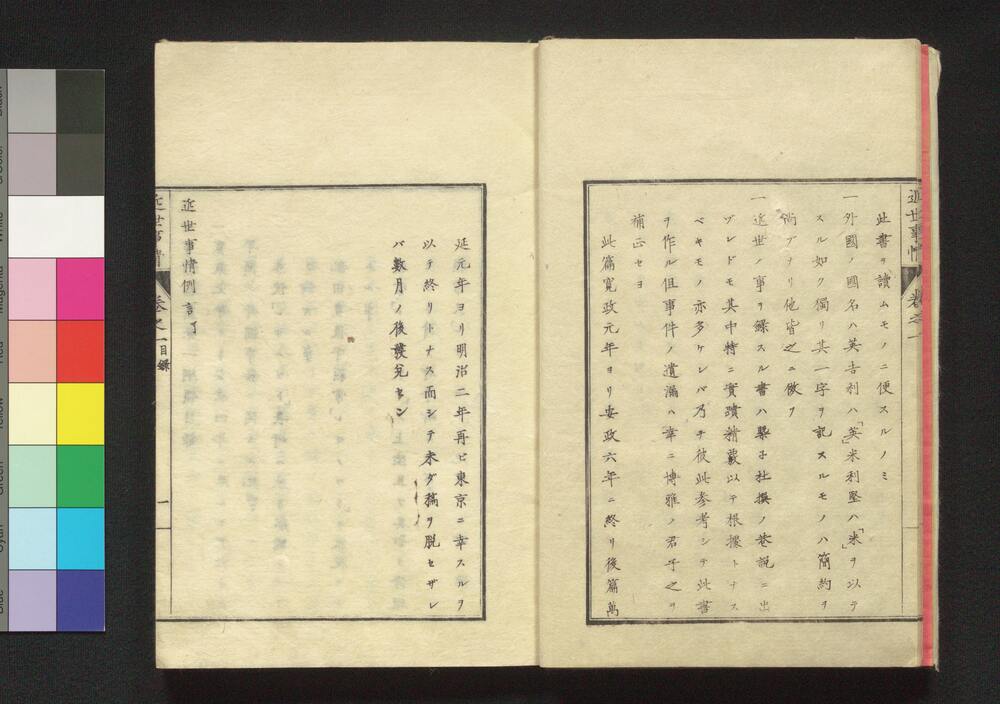 近世事情
卷之一
此書ヲ讀ムモノニ便スルノミ
一外國ノ國名ハ英吉利ハ「英」米利堅ハ「米」ヲ以テ
スル如ク獨リ其一字ヲ記スルモノハ簡約ヲ
尚アリ他皆之ニ傚フ
一近世ノ事ヲ録スル書ハ槩子杜撰ノ巷説ニ出
ヅレドモ其中特ニ實蹟精覈以テ根據トナス
ベキモノ亦多ケレバ乃チ彼此參考シテ此書
ヲ作ル但事件ノ遺漏ハ幸ニ博雅ノ君子之ヲ
補正セヨ
此篇寛政元年ヨリ安政六年ニ終リ後篇萬
延元年ヨリ明治二年再ビ東京ニ幸スルヲ
以テ終リトナス而シテ未ダ稿ヲ脱セザレ
バ數月ノ後發兌セン
近世事情例言了
近世事情
卷之一目録
一